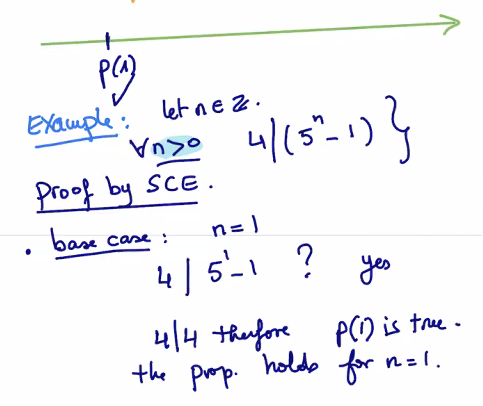 P(1)
Example: let n ∈ ℤ.
∀n>0 4|(5ⁿ-1) }
Proof by SCE.
• base case: n=1
4 | 5¹-1 ? yes
4|4 therefore P(1) is true.
the prop. holds for n=1.